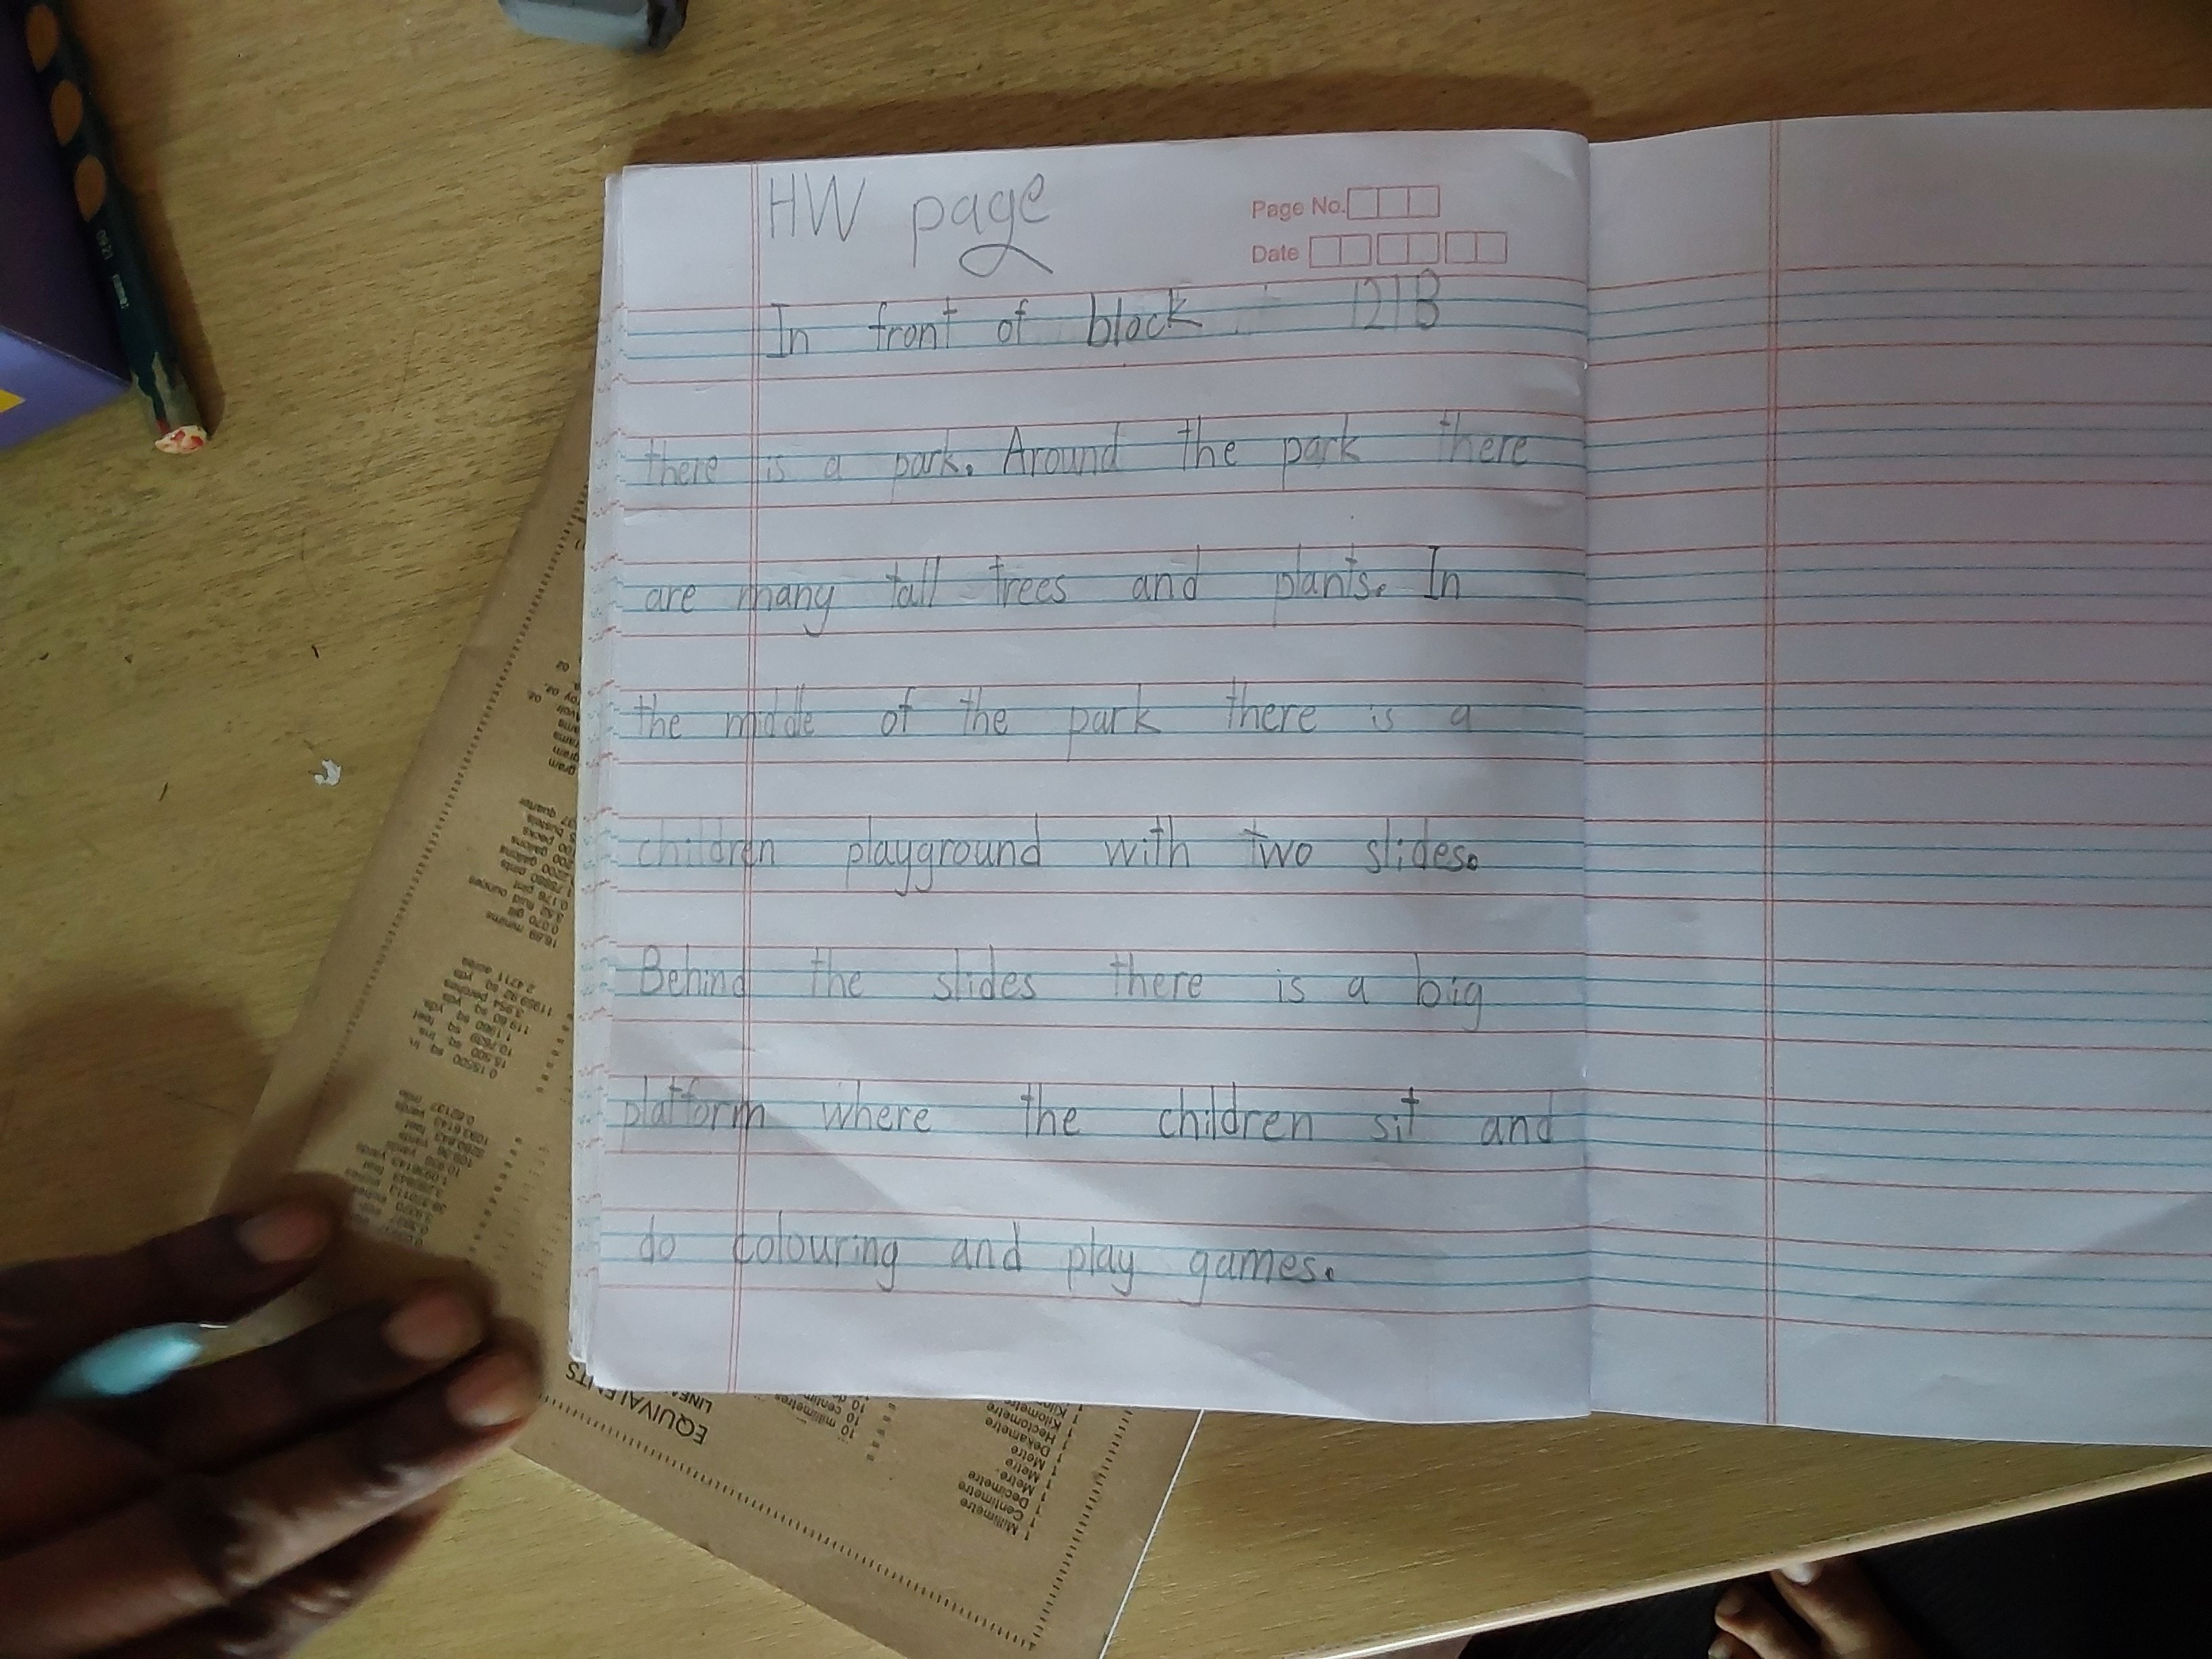 HW page
Page No.
Date
In front of block 121B
there is a park. Around the park there
are many tall trees and plants. In
the middle of the park there is a
children playground with two slides.
Behind the slides there is a big
platform where the children sit and
do colouring and play games.
EQUIVALENTS
Millimetre
Centimetre
Decimetre
Metre
Metre
Dekametre
Hectometre
Kilometre